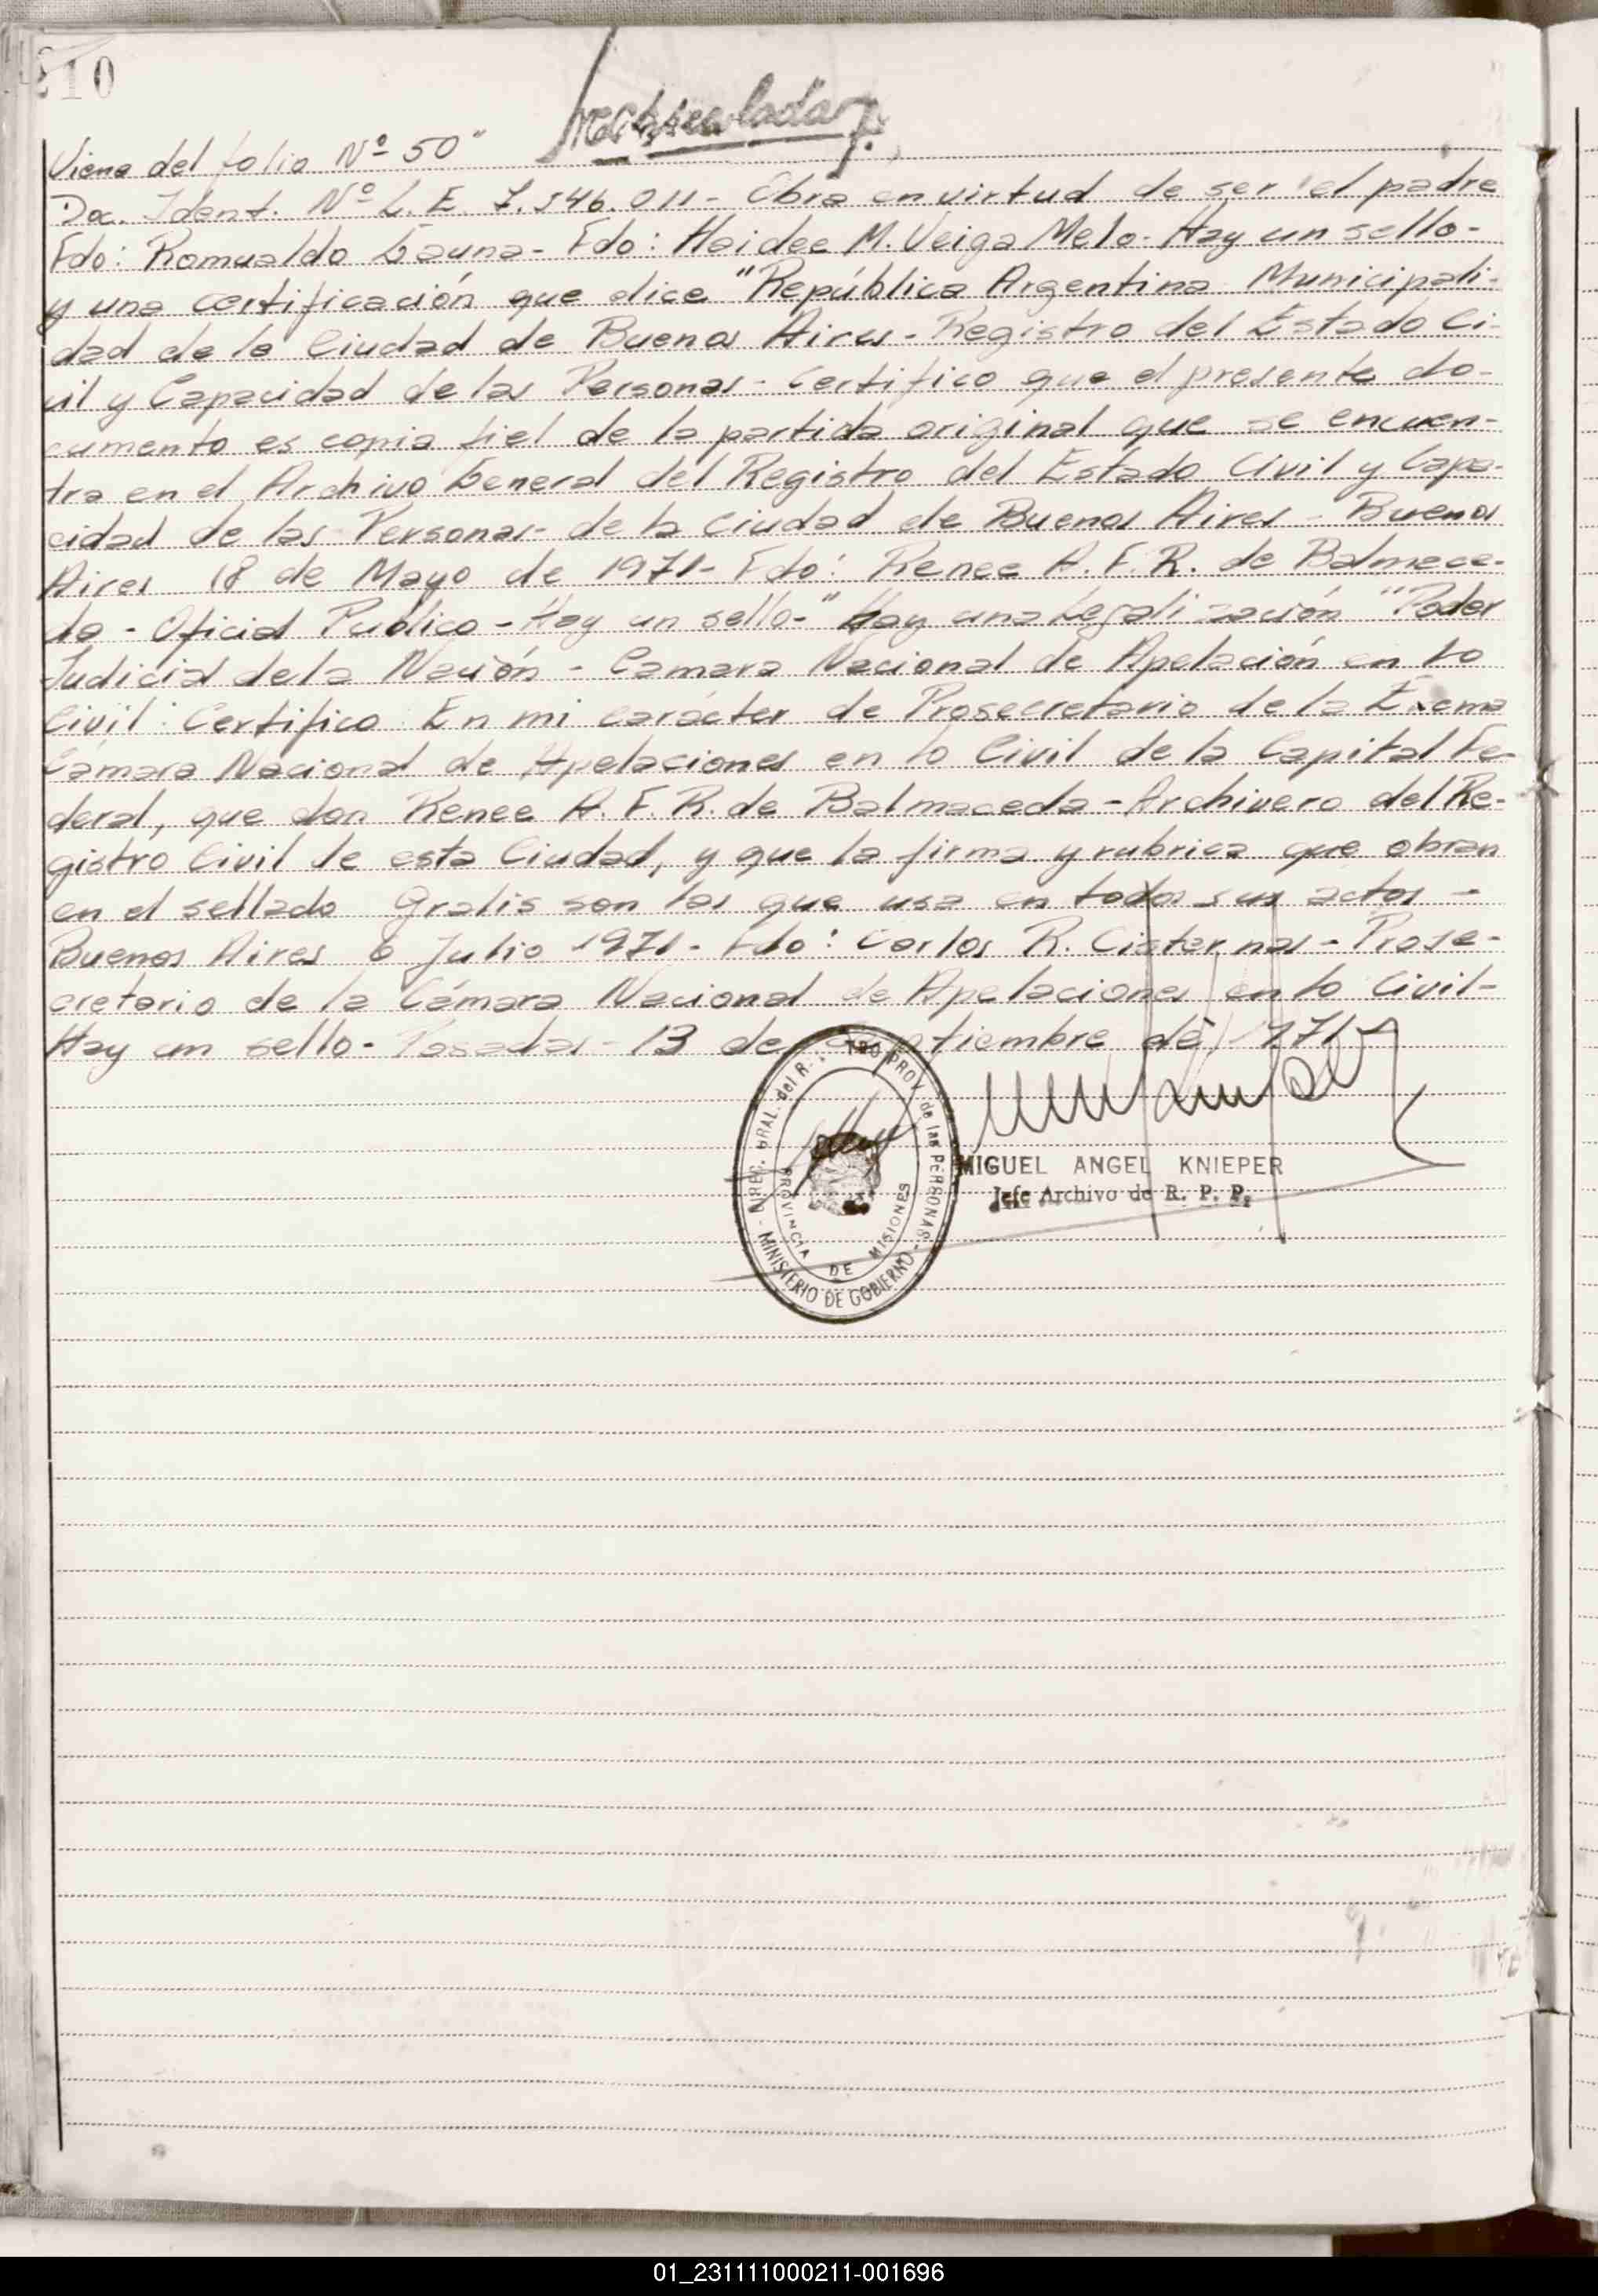 210
Viene del folio Nº 50"
Doc. Ident. Nº L. E. 7.546.011- Obra en virtud de ser el padre
Fdo: Romualdo Gauna- Fdo: Haidee M. Veiga Melo- Hay un sello-
y una certificación que dice "República Argentina Municipali-
dad de la Ciudad de Buenos Aires- Registro del Estado Ci-
vil y Capacidad de las Personas- Certifico que el presente do-
cumento es copia fiel de la partida original que se encuen-
tra en el Archivo General del Registro del Estado Civil y Capa-
cidad de las Personas- de la Ciudad de Buenos Aires- Buenos
Aires 18 de Mayo de 1971- Fdo: Renee A. F. R. de Balmace-
da- Oficial Publico- Hay un sello-" Hay una Legalización "Poder
Judicial de la Nación- Camara Nacional de Apelación en lo
Civil: Certifico En mi carácter de Prosecretario de la Exema
Cámara Nacional de Apelaciones en lo Civil de la Capital Fe-
deral, que don Renee A. F. R. de Balmaceda- Archivero del Re-
gistro Civil de esta Ciudad, y que la firma y rubrica que obran
en el sellado Gratis son las que usa en todos sus actos-
Buenos Aires 6 Julio 1971- Fdo: Carlos R. Cisternas- Prose-
cretario de la Cámara Nacional de Apelaciones en lo Civil-
Hay un sello- Posadas- 13 de Septiembre de 1971-
PROV. de las PERSONAS
MINISTERIO DE GOBIERNO
PROVINCIA DE MISIONES
MIGUEL ANGEL KNIEPER
Jefe Archivo de R. P. P.
01_231111000211-001696